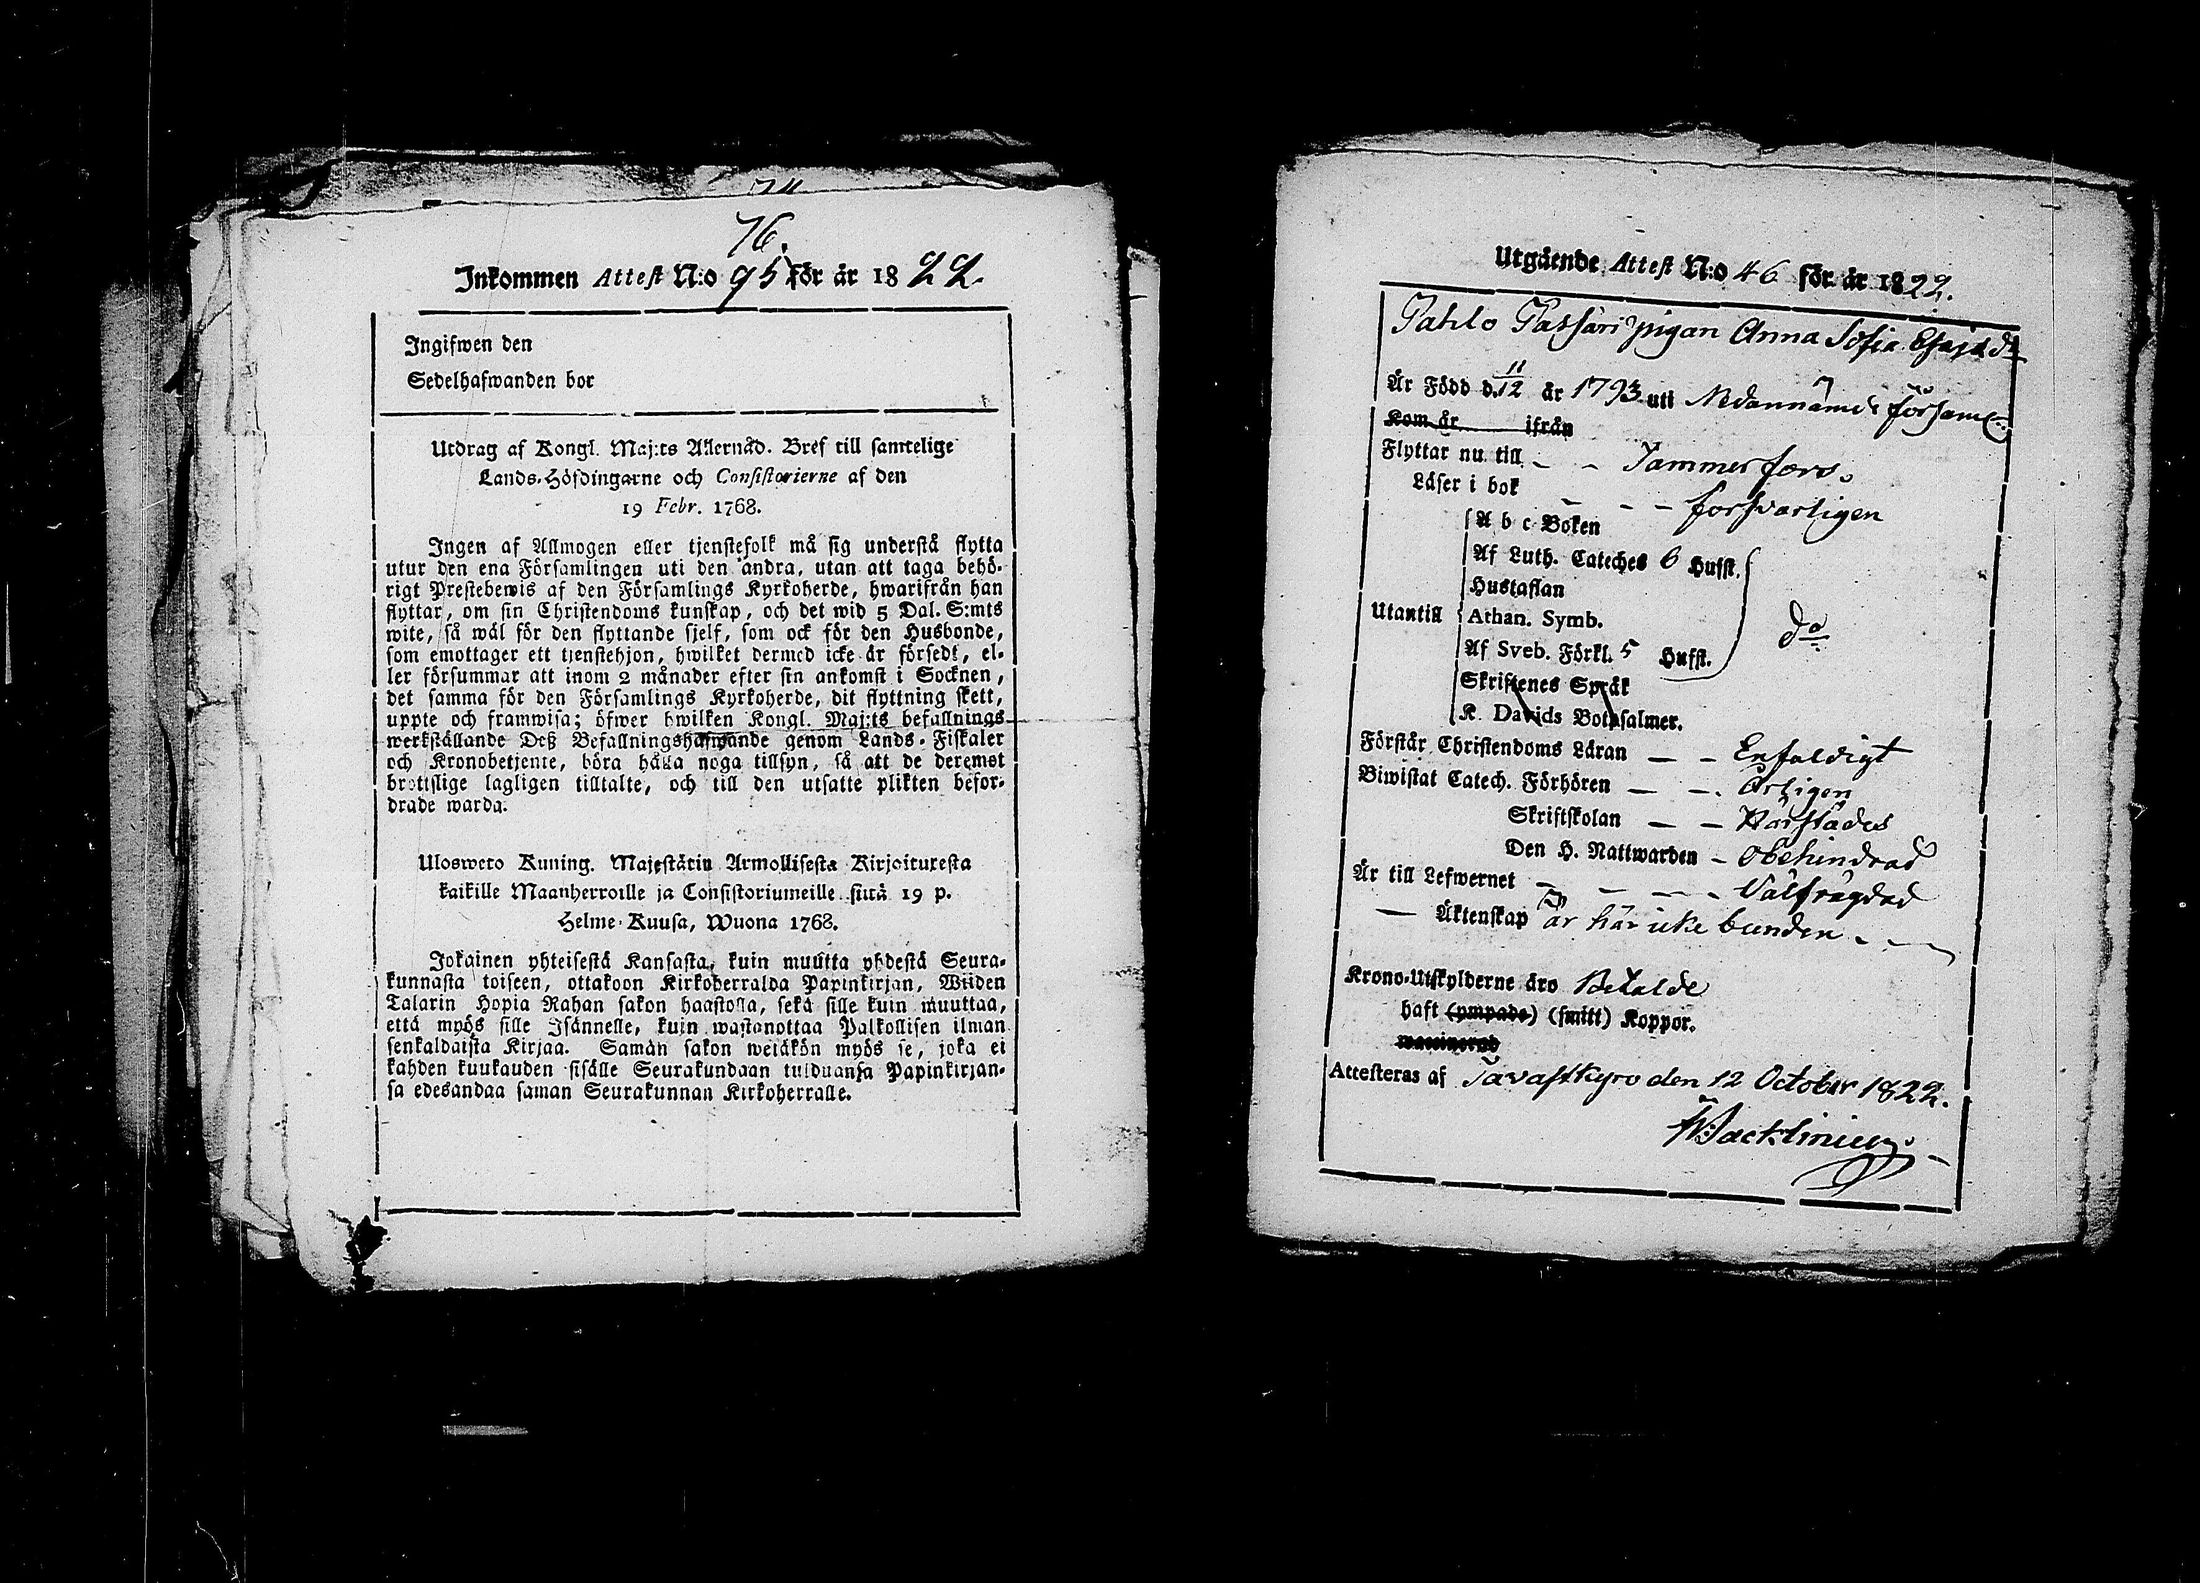 76.
Inkommen Attest N:o 95 för år 1822.
Ingifwen den
Sedelhafwanden bor
Utdrag af Kongl. Maj:ts Allernåd. Bref till samtelige
Lands-Höfdingarne och Consistorierne af den
19 Febr. 1768.
Ingen af Allmogen eller tjenstefolk må sig understå flytta
utur den ena Församlingen uti den andra, utan att taga behö-
rigt Prestebewis af den Församlings Kyrkoherde, hwarifrån han
flyttar, om sin Christendoms kunskap, och det wid 5 Dal. S:mts
wite, så wäl för den flyttande sjelf, som ock för den Husbonde,
som emottager ett tjenstehjon, hwilket dermed icke är försedt, el-
ler försummar att inom 2 månader efter sin ankomst i Socknen,
det samma för den Församlings Kyrkoherde, dit flyttning skett,
uppte och framwisa; öfwer hwilken Kongl. Maj:ts befallnings
werkställande Deß Befallningshafwande genom Lands-Fiskaler
och Kronobetjente, böra hålla noga tillsyn, så att de deremot
brottslige lagligen tilltalte, och till den utsatte plikten befor-
drade warda.
Ulosweto Kuning. Majestätin Armollisesta Kirjoituxesta
kaikille Maanherroille ja Consistoriumeille siitä 19 p.
Helme-Kuusa, Wuona 1768.
Jokainen yhteisestä Kansasta, kuin muutta yhdestä Seura-
kunnasta toiseen, ottakoon Kirkoherralda Papinkirjan, Wiiden
Talarin Hopia Rahan sakon haastolla, sekä sille kuin muuttaa,
että myös sille Isännelle, kuin wastanottaa Palkollisen ilman
senkaldaista Kirjaa. Samän sakon wetäkön myös se, joka ei
kahden kuukauden sisälle Seurakundaan tulduansa Papinkirjan-
sa edesandaa saman Seurakunnan Kirkoherralle.
Utgående Attest N:o 46 för år 1822.
Pahlo Passari pigan Anna Sofia Esajadr
Är Född d. 11/12 år 1793 uti Nedannämde församl:
Kom år ifrån
Flyttar nu till - - Tammerfors.
Läser i bok - - - forsvarligen
A b c Boken
Af Luth. Cateches 6 Hufst.
Hustaflan
Utantill Athan. Symb. do
Af Sveb. Förkl. 5 Hufst.
Skriftenes Språk
K. Davids Botpsalmer.
Förstår Christendoms Läran - - Enfaldigt
Biwistat Catech. Förhören - - Årligen
Skriftskolan - - Härstädes
Den H. Nattwarden - obehindrad
Är till Lefwernet - - - - Välfrägdad
- Äktenskap är här icke bunden - -
Krono-Utskylderne äro Betalde
haft (ympade) (smitt) Koppor.
vaccinerad
Attesteras af Tavastkyro den 12 October 1822.
F Wacklinius.